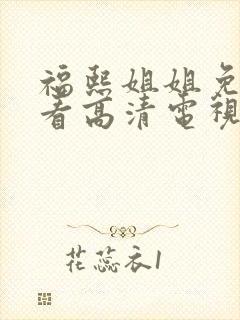 福熙姐姐免
看高清電視
花蕊衣1